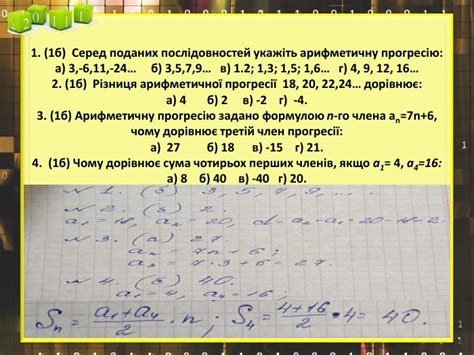 2011
1. (1б) Серед поданих послідовностей укажіть арифметичну прогресію:
а) 3,-6,11,-24… б) 3,5,7,9… в) 1.2; 1,3; 1,5; 1,6… г) 4, 9, 12, 16…
2. (1б) Різниця арифметичної прогресії 18, 20, 22,24… дорівнює:
а) 4 б) 2 в) -2 г) -4.
3. (1б) Арифметичну прогресію задано формулою n-го члена aₙ=7n+6,
чому дорівнює третій член прогресії:
а) 27 б) 18 в) -15 г) 21.
4. (1б) Чому дорівнює сума чотирьох перших членів, якщо a₁= 4, a₄=16:
а) 8 б) 40 в) -40 г) 20.
N 1. (б) 3, 5, 7, 9, ...
N 2. (б) 2.
a₁=18, a₂=20, d=a₂-a₁=20-18=2.
N 3. (а) 27.
aₙ = 7n+6;
a₃ = 7·3+6=27.
N 4. (б) 40.
a₁=4, a₄=16,
Sₙ = (a₁+a₄)/2 · n; S₄ = (4+16)/2 · 4 = 40.